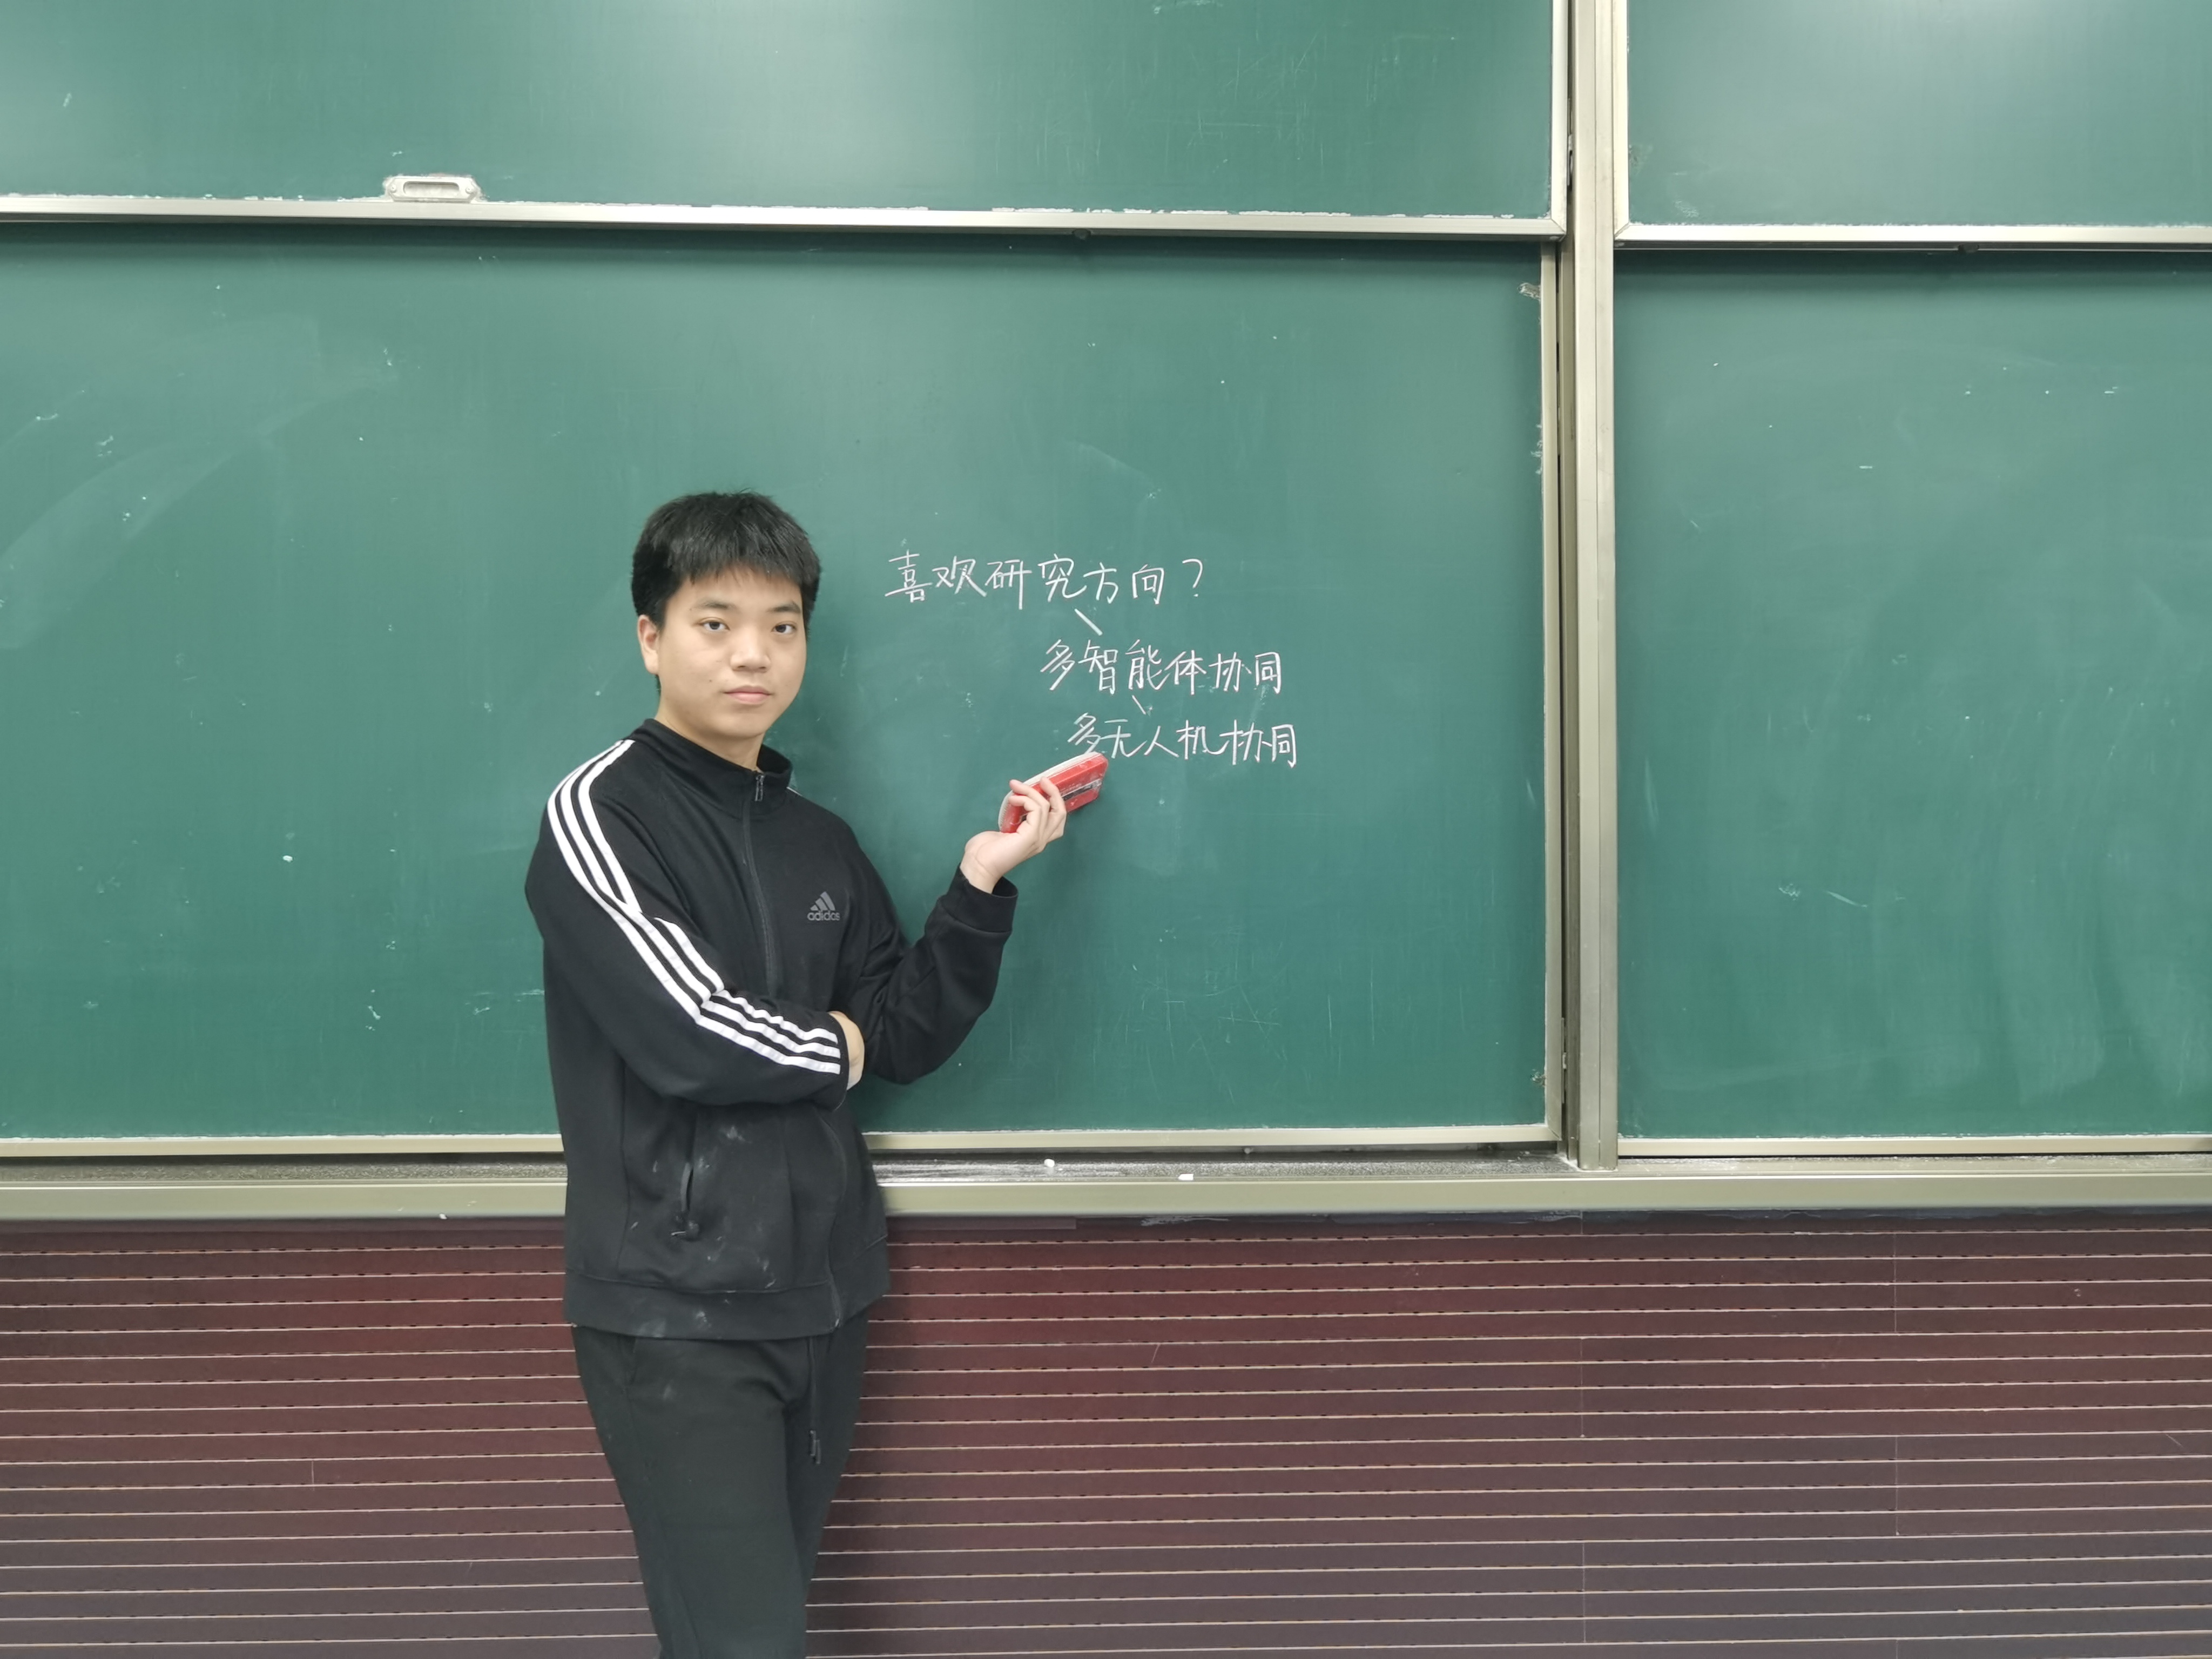 喜欢研究方向？
多智能体协同
多无人机协同
adidas